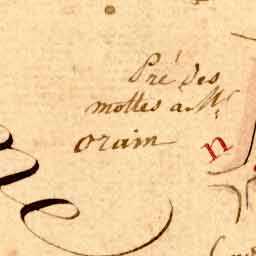 Pré des
mottes a Mr.
orain
n